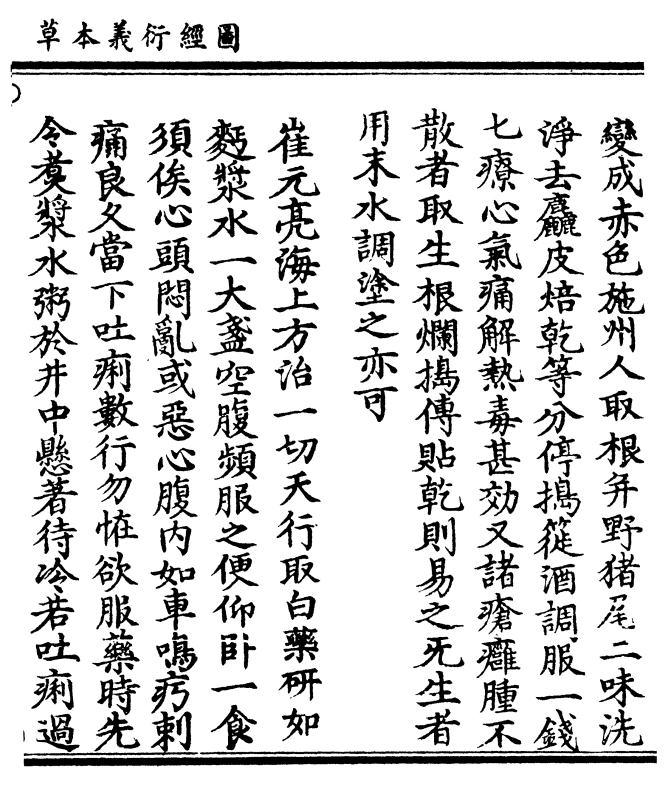 圖經衍義本草
變成赤色施州人取根并野猪尾二味洗
淨去麤皮焙乾等分停搗篵酒調服一錢
七療心氣痛解熱毒甚効又諸瘡癰腫不
散者取生根爛搗傅貼乾則易之无生者
用末水調塗之亦可
崔元亮海上方治一切天行取白藥研如
麫漿水一大盞空腹頻服之便仰卧一食
須俟心頭悶亂或惡心腹内如車鳴疞刺
痛良久當下吐痢數行勿恠欲服藥時先
令煑漿水粥於井中懸著待冷若吐痢過